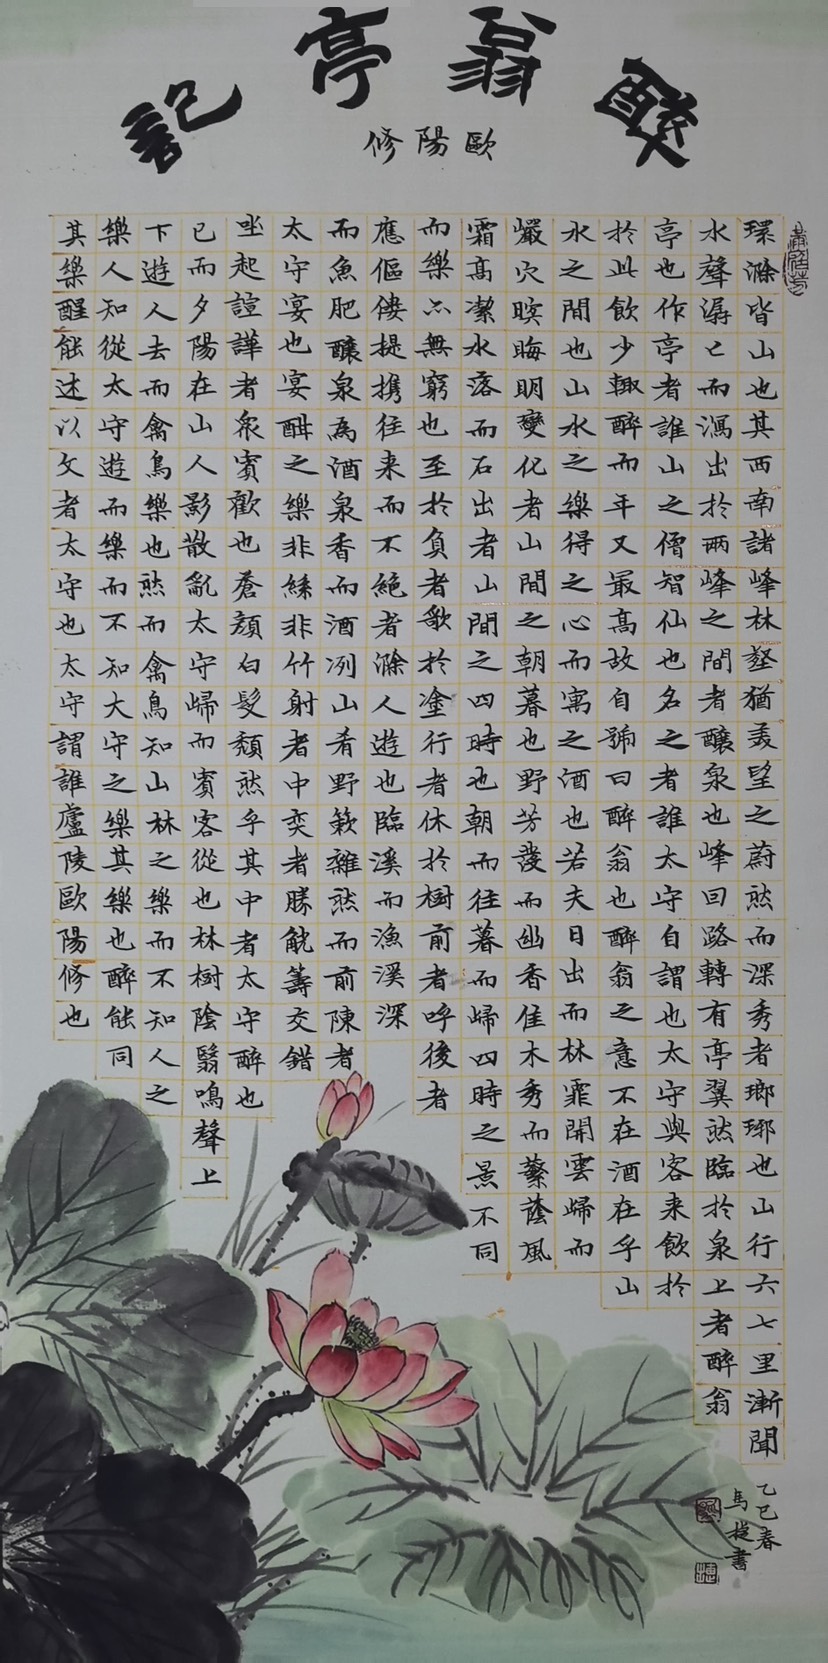 醉翁亭記
歐陽修
環滁皆山也其西南諸峰林壑猶美望之蔚然而深秀者瑯琊也山行六七里漸聞
水聲潺〻而瀉出於兩峰之間者釀泉也峰回路轉有亭翼然臨於泉上者醉翁
亭也作亭者誰山之僧智仙也名之者誰太守自謂也太守與客来飲於
於此飲少輒醉而年又最高故自號曰醉翁也醉翁之意不在酒在乎山
水之間也山水之樂得之心而寓之酒也若夫日出而林霏開雲歸而
巖穴暝晦明變化者山間之朝暮也野芳發而幽香佳木秀而蘩蔭風
霜高潔水落而石出者山間之四時也朝而往暮而歸四時之景不同
而樂亦無窮也至於負者歌於塗行者休於樹前者呼後者
應傴僂提携往来而不絕者滁人遊也臨溪而漁溪深
而魚肥釀泉為酒泉香而酒冽山肴野蔌雜然而前陳者
太守宴也宴酣之樂非絲非竹射者中奕者勝觥籌交錯
坐起諠譁者眾賓歡也蒼顏白髮頹然乎其中者太守醉也
已而夕陽在山人影散亂太守歸而賓客從也林樹陰翳鳴聲上
下遊人去而禽鳥樂也然而禽鳥知山林之樂而不知人之
樂人知從太守遊而樂而不知大守之樂其樂也醉能同
其樂醒能述以文者太守也太守謂誰廬陵歐陽修也
乙巳春
馬 書